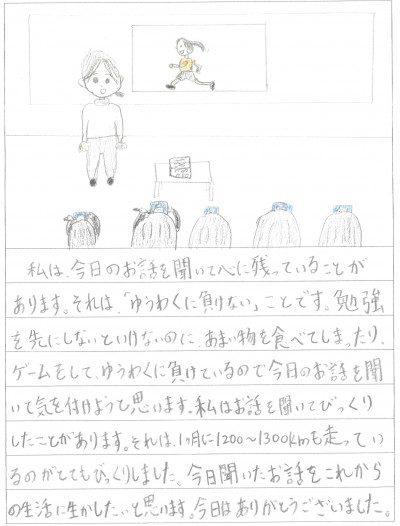 私は、今日のお話を聞いて心に残っていることが
あります。それは、「ゆうわくに負けない」ことです。勉強
を先にしないといけないのに、あまい物を食べてしまったり、
ゲームをして、ゆうわくに負けているので今日のお話を聞
いて気を付けようと思います。私はお話を聞いてびっくり
したことがあります。それは、1ヶ月に1200〜1300kmも走ってい
るのがとてもびっくりしました。今日聞いたお話をこれから
の生活に生かしたいと思います。今日はありがとうございました。